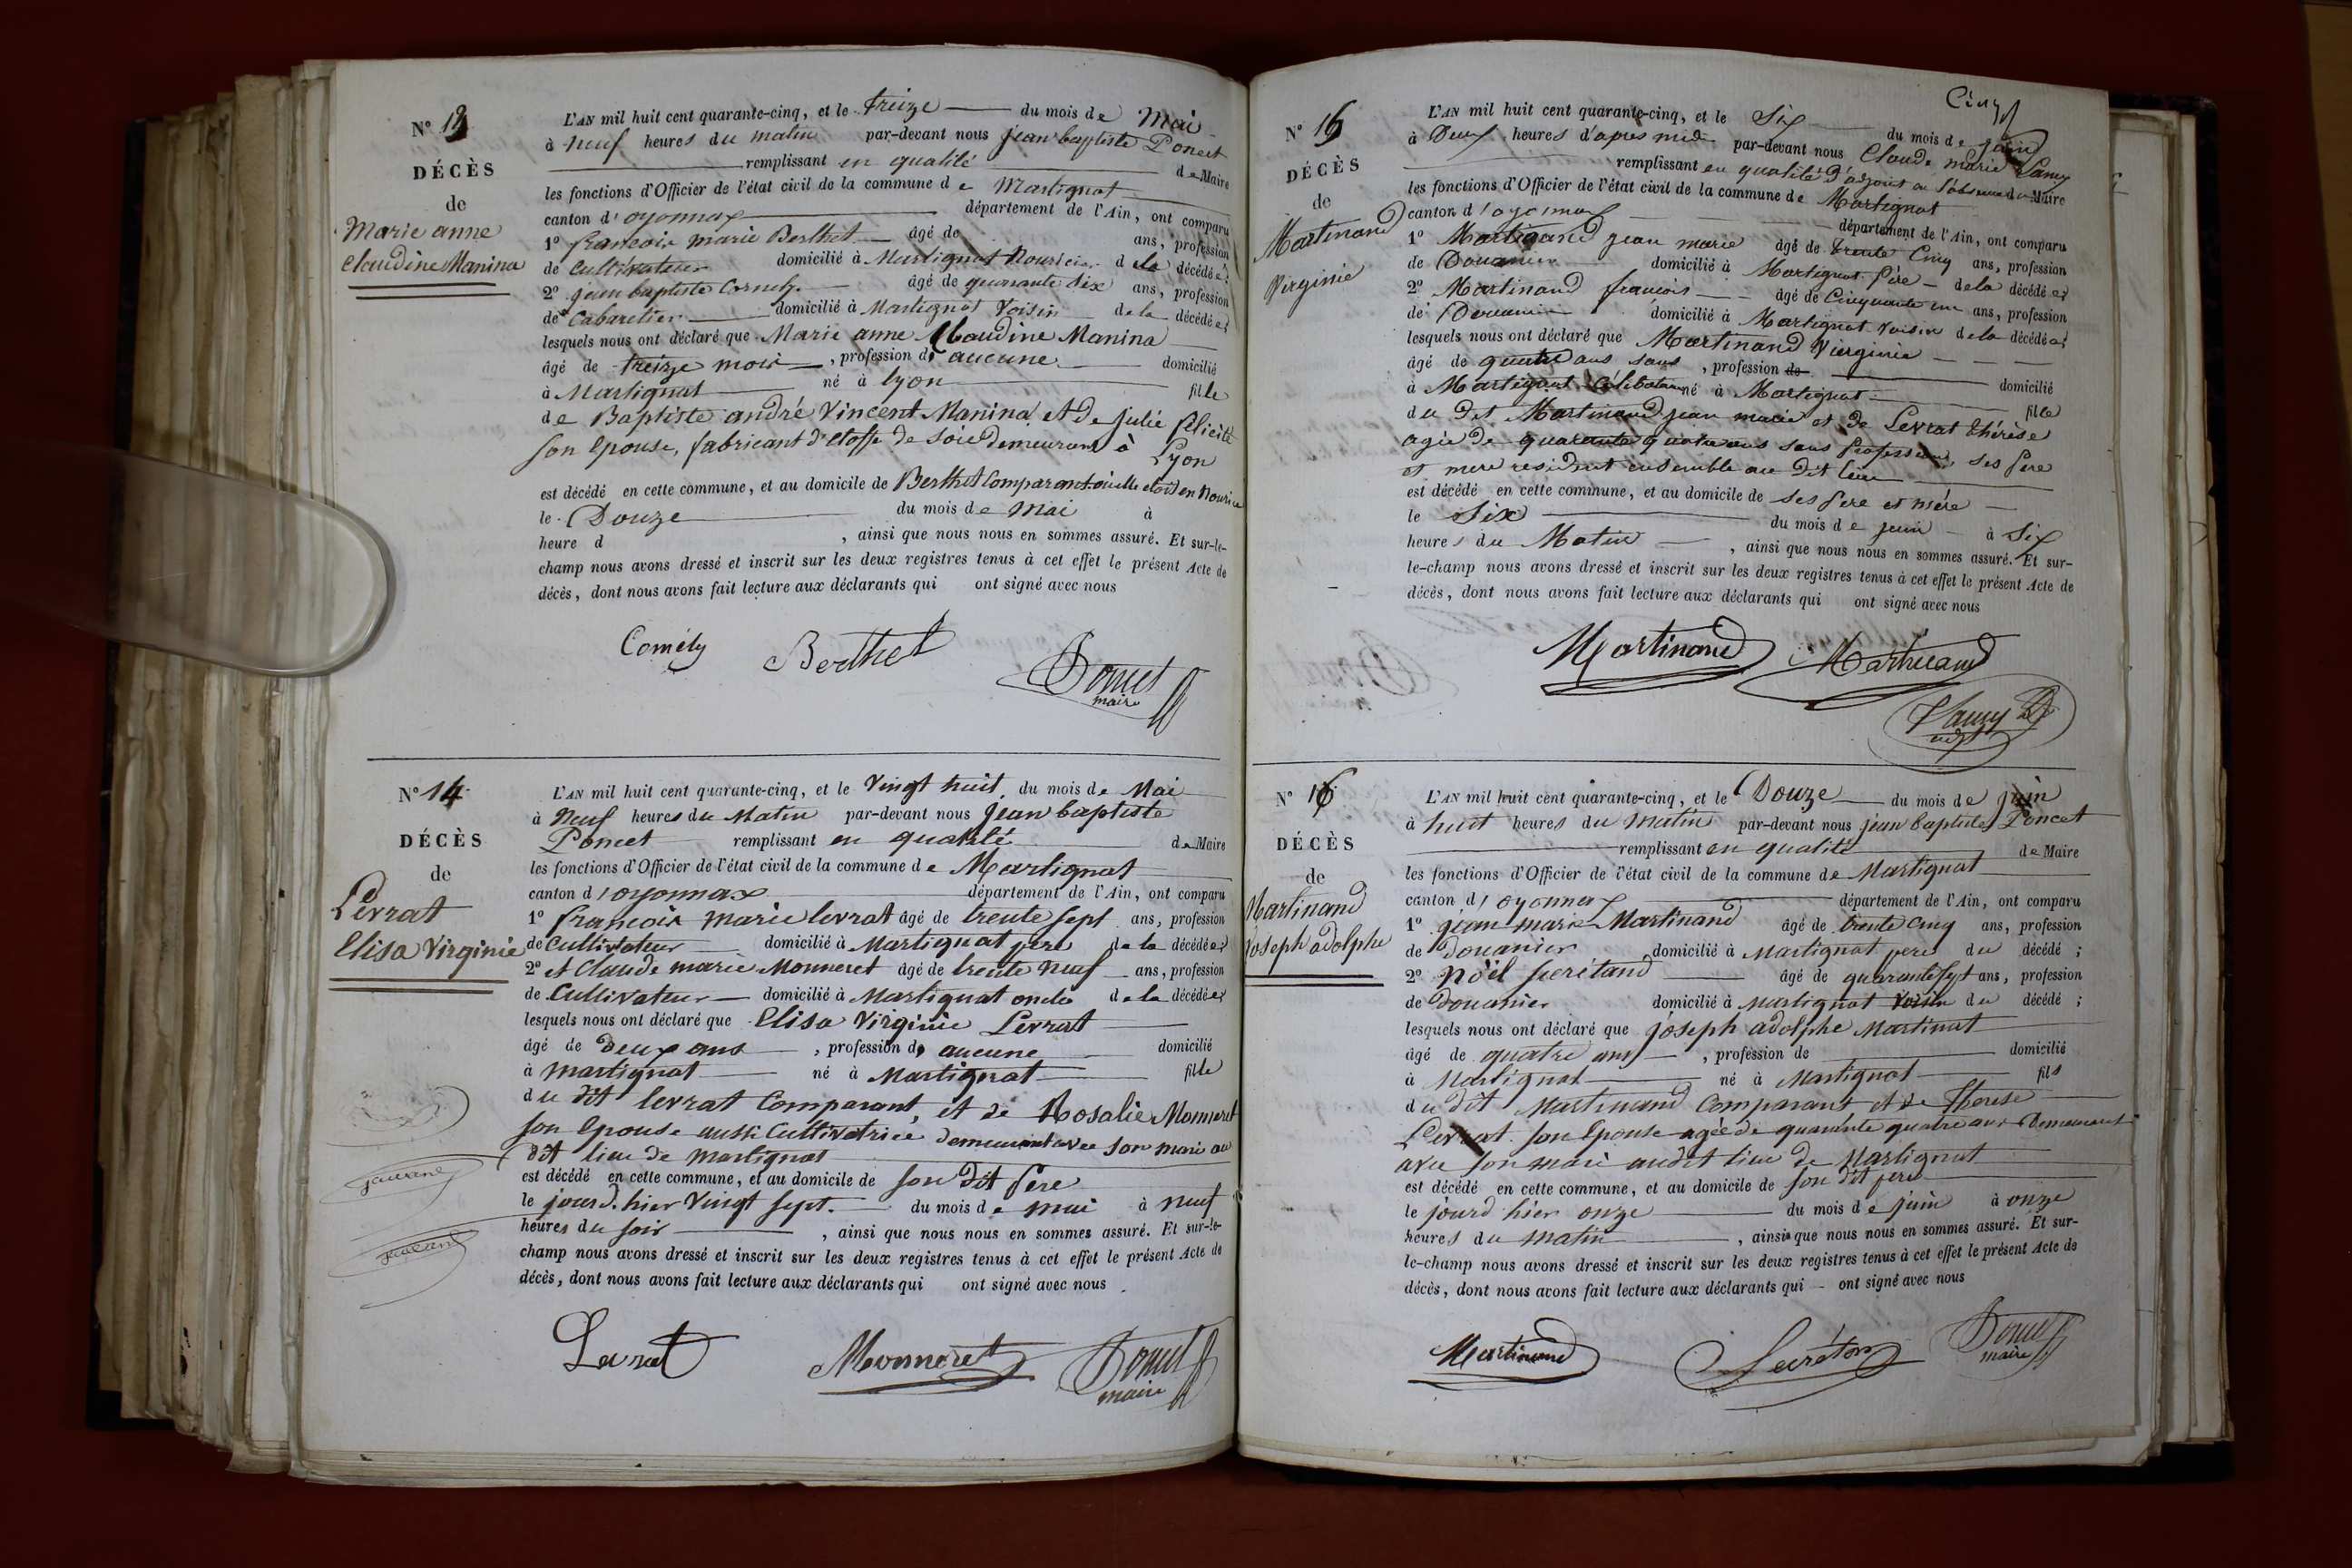 N° 13
DÉCÈS
de
Marie anne
Claudine Manina
L'AN mil huit cent quarante-cinq, et le treize du mois de Mai
à neuf heures du matin par-devant nous jean baptiste Poncet
remplissant en qualité de Maire
les fonctions d'Officier de l'état civil de la commune de Martignat
canton d'oyonnax département de l'Ain, ont comparu
1° francois marie Berthet âgé de ans, profession
de Cultivateur domicilié à Martignat Nouricier de la décédée;
2° jean baptiste Comely âgé de quarante six ans, profession
de Cabaretier domicilié à Martignat Voisin de la décédée;
lesquels nous ont déclaré que Marie anne Claudine Manina
âgé de treize mois, profession d aucune domicilié
à Martignat né à lyon fille
de Baptiste andré Vincent Manina et de julie félicité
son Epouse, fabricant d'etoffe de Soie demeurant à Lyon
est décédé en cette commune, et au domicile de Berthet Comparant ou elle etoit en Nourice
le Douze du mois de Mai à
heure d , ainsi que nous nous en sommes assuré. Et sur-le-
champ nous avons dressé et inscrit sur les deux registres tenus à cet effet le présent Acte de
décès, dont nous avons fait lecture aux déclarants qui ont signé avec nous
Comély Berthet Poncet
maire
N° 14
DÉCÈS
de
Levrat
Elisa Virginie
L'AN mil huit cent quarante-cinq, et le Vingt huit du mois de Mai
à Neuf heures du Matin par-devant nous Jean baptiste
Poncet remplissant en qualité de Maire
les fonctions d'Officier de l'état civil de la commune de Martignat
canton d'oyonnax département de l'Ain, ont comparu
1° francois marie levrat âgé de trente sept ans, profession
de Cultivateur domicilié à Martignat pere de la décédée;
2° et Claude marie Monneret âgé de trente neuf ans, profession
de Cultivateur domicilié à Martignat oncle de la décédée;
lesquels nous ont déclaré que Elisa Virginie Levrat
âgé de Deux ans, profession d aucune domicilié
à Martignat né à Martignat fille
du dit levrat Comparant, et de Rosalie Monneret
son Epouse aussi Cultivatrice demeurant avec son mari au
dit lieu de Martignat
est décédé en cette commune, et au domicile de son dit Pere
le jourd'hier Vingt sept du mois de mai à neuf
heures du soir, ainsi que nous nous en sommes assuré. Et sur-le-
champ nous avons dressé et inscrit sur les deux registres tenus à cet effet le présent Acte de
décès, dont nous avons fait lecture aux déclarants qui ont signé avec nous
Levrat Monneret Poncet
maire
Cinq
N° 15
DÉCÈS
de
Martinand
Virginie
L'AN mil huit cent quarante-cinq, et le Six du mois de juin
à Deux heures d'apres midi par-devant nous Claude marie
remplissant en qualité d'adjoint en l'absence du Maire
les fonctions d'Officier de l'état civil de la commune de Martignat
canton d'oyonnax département de l'Ain, ont comparu
1° Martinand jean marie âgé de trente Cinq ans, profession
de Douanier domicilié à Martignat Père de la décédée;
2° Martinand francois âgé de Cinquante un ans, profession
de Douanier domicilié à Martignat Voisin de la décédée;
lesquels nous ont déclaré que Martinand Virginie
âgé de quatre ans sans, profession de domicilié
à Martignat Célibataire né à Martignat fille
du dit Martinand jean marie et de Levrat thérèse
agée de quarante quatre ans sans Profession, ses Pere
et mere residant ensemble au dit lieu
est décédé en cette commune, et au domicile de ses Pere et mére
le Six du mois de juin à Six
heures du Matin, ainsi que nous nous en sommes assuré. Et sur-
le-champ nous avons dressé et inscrit sur les deux registres tenus à cet effet le présent Acte de
décès, dont nous avons fait lecture aux déclarants qui ont signé avec nous
Martinand Martinand
N° 16
DÉCÈS
de
Martinand
Joseph adolphe
L'AN mil huit cent quarante-cinq, et le Douze du mois de juin
à huit heures du Matin par-devant nous jean baptiste Poncet
remplissant en qualité de Maire
les fonctions d'Officier de l'état civil de la commune de Martignat
canton d'oyonnax département de l'Ain, ont comparu
1° jean marie Martinand âgé de trente Cinq ans, profession
de Douanier domicilié à Martignat pere du décédé;
2° Nöel Secrétand âgé de quarante sept ans, profession
de Douanier domicilié à Martignat Voisin du décédé;
lesquels nous ont déclaré que joseph adolphe Martinat
âgé de quatre ans, profession de domicilié
à Martignat né à Martignat fils
du dit Martinand Comparant et de Therese
Levrat son Epouse agée de quarante quatre ans Demeurant
avec son mari audit lieu de Martignat
est décédé en cette commune, et au domicile de son dit pere
le jourd'hier onze du mois de juin à onze
heures du matin, ainsi que nous nous en sommes assuré. Et sur-
le-champ nous avons dressé et inscrit sur les deux registres tenus à cet effet le présent Acte de
décès, dont nous avons fait lecture aux déclarants qui — ont signé avec nous
Martinand Secréton Poncet
maire